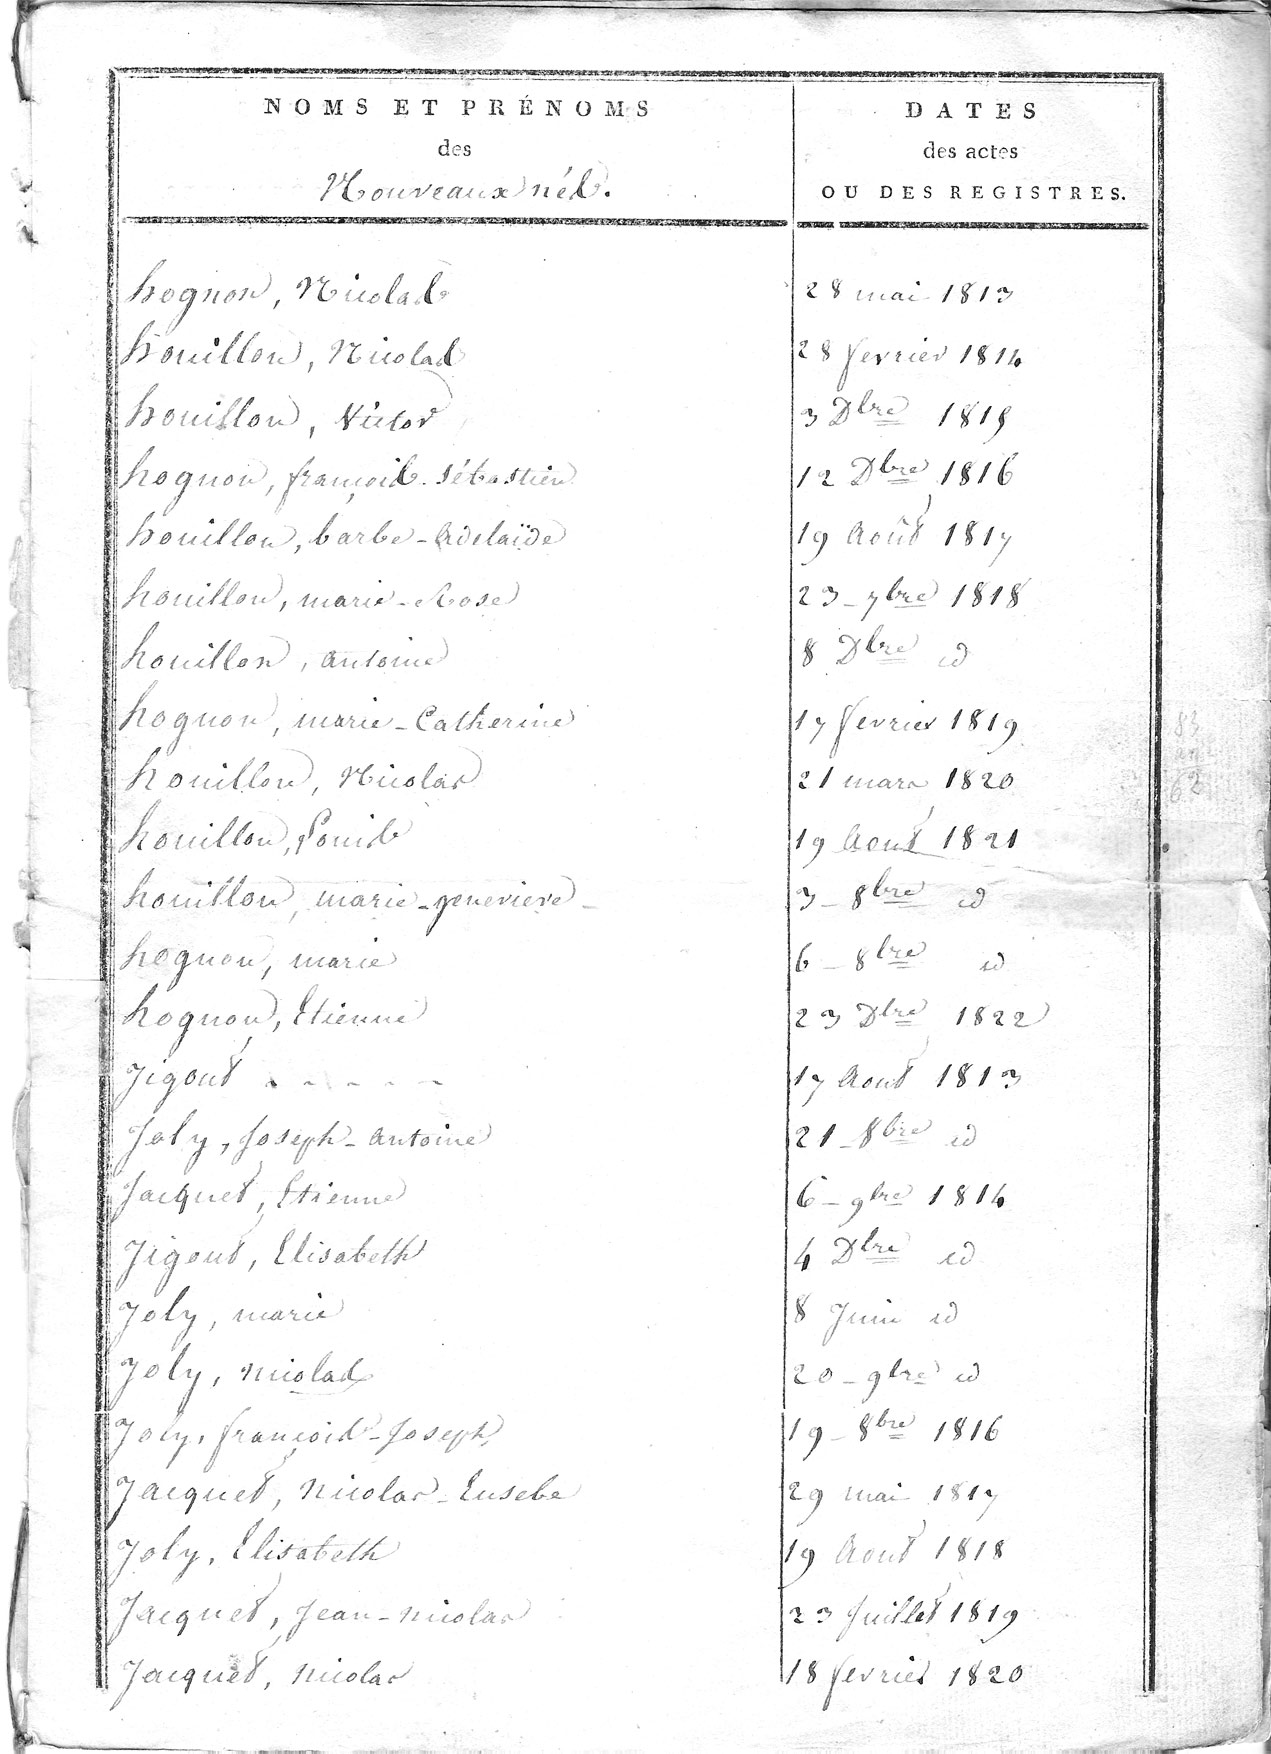 NOMS ET PRÉNOMS
des
Nouveaux nés.
DATES
des actes
OU DES REGISTRES.
hognon, Nicolas 28 mai 1813
houillon, Nicolas 28 fevrier 1814
houillon, Victor 3 Dbre 1815
hognon, françois-sébastien 12 Dbre 1816
houillon, barbe-adelaïde 19 Août 1817
houillon, marie-Rose 23-7bre 1818
houillon, antoine 8 Dbre id
hognon, marie-Catherine 17 fevrier 1819
houillon, Nicolas 21 mars 1820
houillon, Louis 19 Aout 1821
houillon, marie-genevieve 3-8bre id
hognon, marie 6-8bre id
hognon, Etienne 23 Dbre 1822
Jigout . - - - - 17 Aout 1813
Joly, Joseph-antoine 21-8bre id
Jacquet, Etienne 6-9bre 1814
Jigout, Elisabeth 4 Dbre id
Joly, marie 8 Juin id
Joly, nicolas 20-9bre id
Joly, françois-Joseph 19-8bre 1816
Jacquet, nicolas-Eusebe 29 mai 1817
Joly, Elisabeth 19 Aout 1818
Jacquet, Jean-nicolas 23 Juillet 1819
Jacquet, nicolas 18 fevrier 1820
83
62